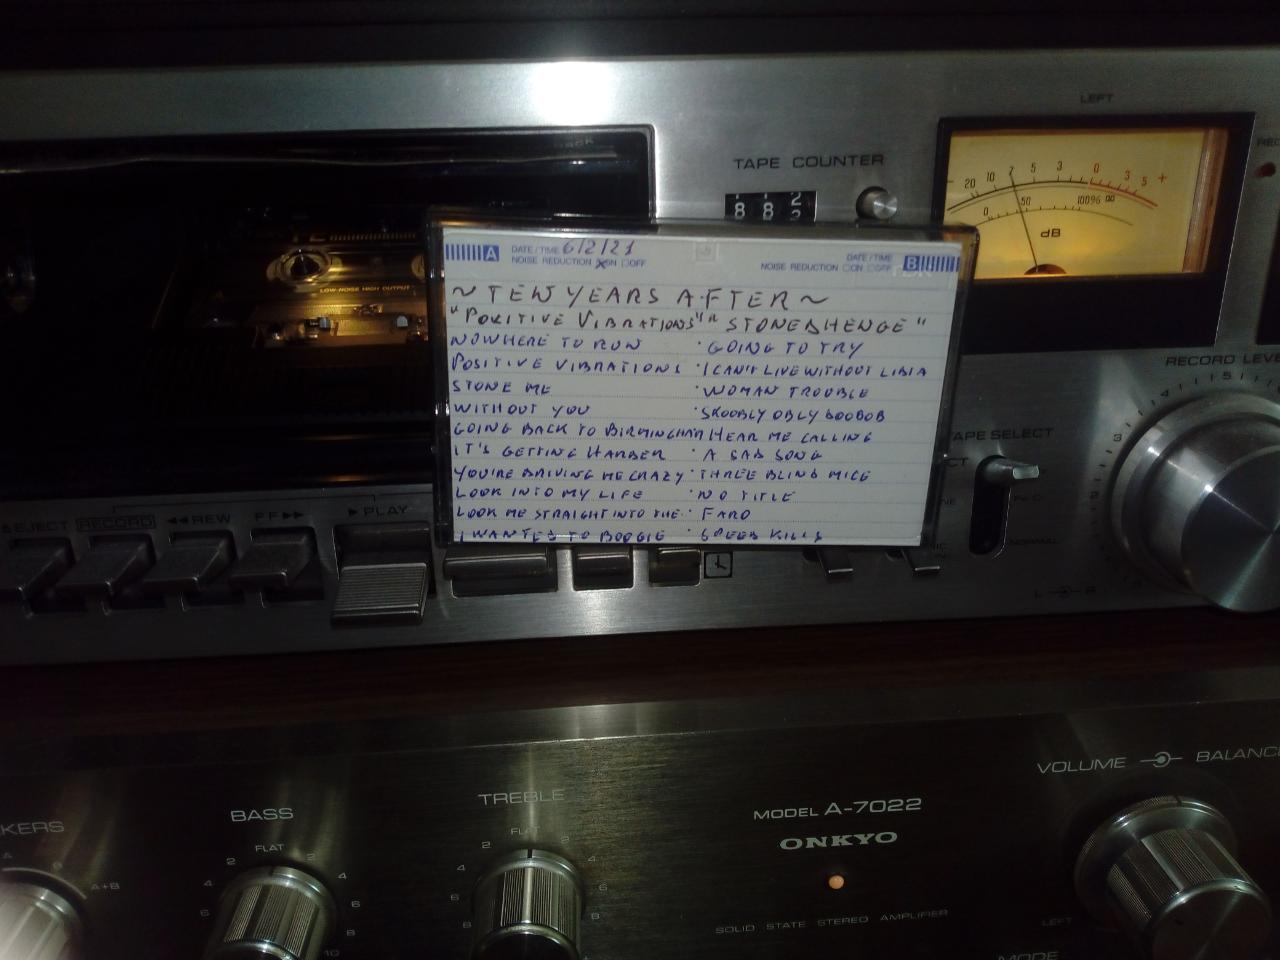 LEFT
TAPE COUNTER
20 10 7 5 3 0 3 5 +
0 50 100%
dB
8 8 2
LOW NOISE HIGH OUTPUT
A DATE/TIME 6/2/21
NOISE REDUCTION ☒ON □OFF
DATE/TIME B
NOISE REDUCTION □ON □OFF
~TEN YEARS AFTER~
"POSITIVE VIBRATIONS" "STONEDHENGE"
NOWHERE TO RUN · GOING TO TRY
POSITIVE VIBRATIONS · I CAN'T LIVE WITHOUT LIDIA
STONE ME · WOMAN TROUBLE
WITHOUT YOU · SKOOBLY OBLY DOOBOB
GOING BACK TO BIRMINGHAM HEAR ME CALLING
IT'S GETTING HARDER · A SAD SONG
YOU'RE DRIVING ME CRAZY · THREE BLIND MICE
LOOK INTO MY LIFE · NO TITLE
LOOK ME STRAIGHT INTO THE.. · FARO
I WANTED TO BOOGIE · SPEED KILLS
RECORD LEVEL
TAPE SELECT
NORMAL
L R
EJECT RECORD ◄◄REW FF►► ►PLAY
VOLUME BALANCE
TREBLE
BASS
FLAT
FLAT
A+B
MODEL A-7022
ONKYO
SOLID STATE STEREO AMPLIFIER
LEFT
MODE